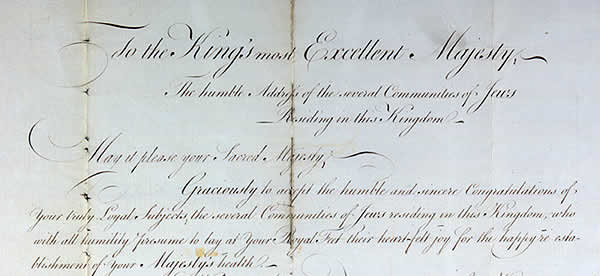 To the King's most Excellent Majesty,
The humble Address of the several Communities of Jews
Residing in this Kingdom
May it please your Sacred Majesty,
Graciously to accept the humble and sincere Congratulations of
Your truly Loyal Subjects, the several Communities of Jews residing in this Kingdom, who
with all humility presume to lay at your Royal Feet their heartfelt joy for the happy re esta-
blishment of your Majesty's health